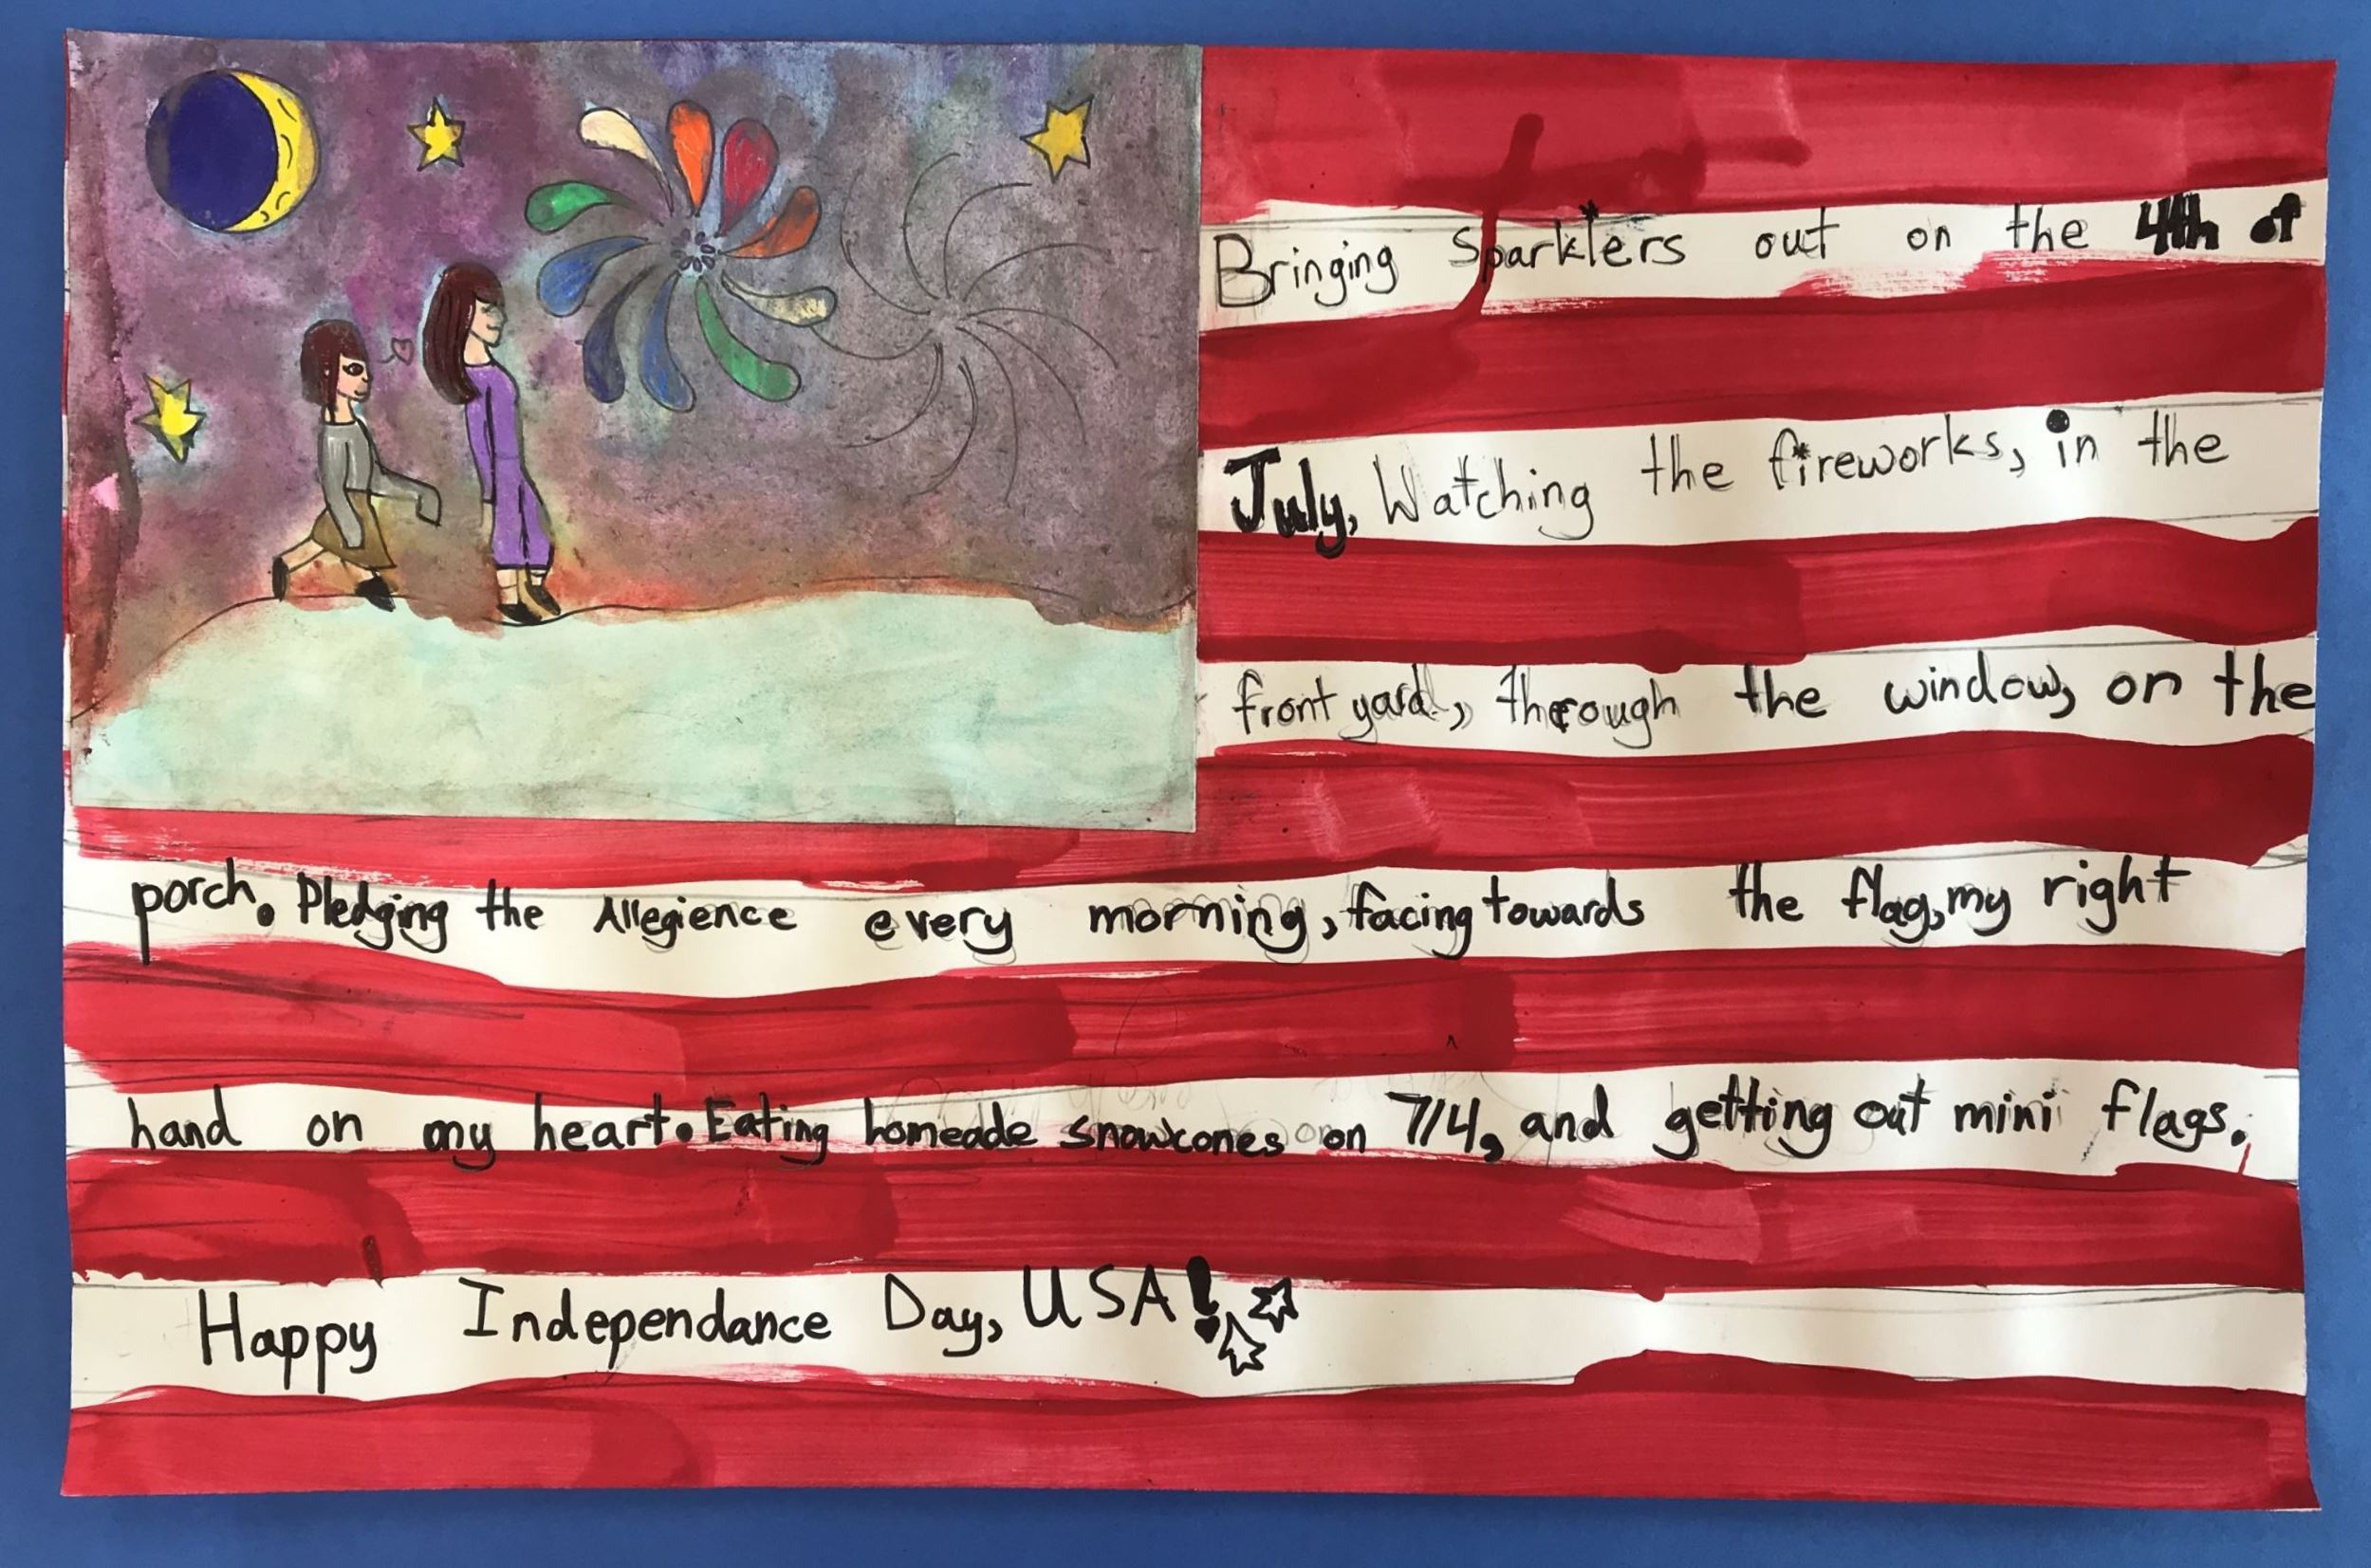 Bringing Sparklers out on the 4th of
July, Watching the fireworks, in the
front yard, through the window, on the
porch. Pledging the Allegience every morning, facing towards the flag, my right
hand on my heart. Eating homeade snowcones on 7/4, and getting out mini flags.
Happy Independance Day, USA!